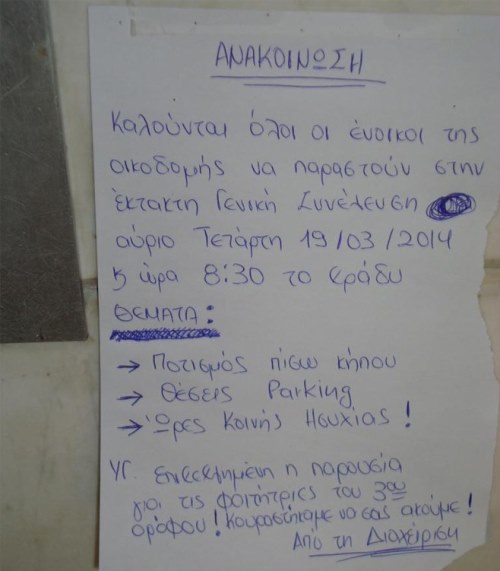 ΑΝΑΚΟΙΝΩΣΗ
Καλούνται όλοι οι ένοικοι της
οικοδομής να παραστούν στην
έκτακτη Γενική Συνέλευση
αύριο Τετάρτη 19/03/2014
& ώρα 8:30 το βράδυ
ΘΕΜΑΤΑ:
→ Ποτισμός πίσω κήπου
→ Θέσεις Parking
→ Ώρες Κοινής Ησυχίας!
ΥΓ. η παρουσία
για τις φοιτήτριες του 3ου
ορόφου! Κουραστήκαμε να σας ακούμε!
Από τη Διαχείριση